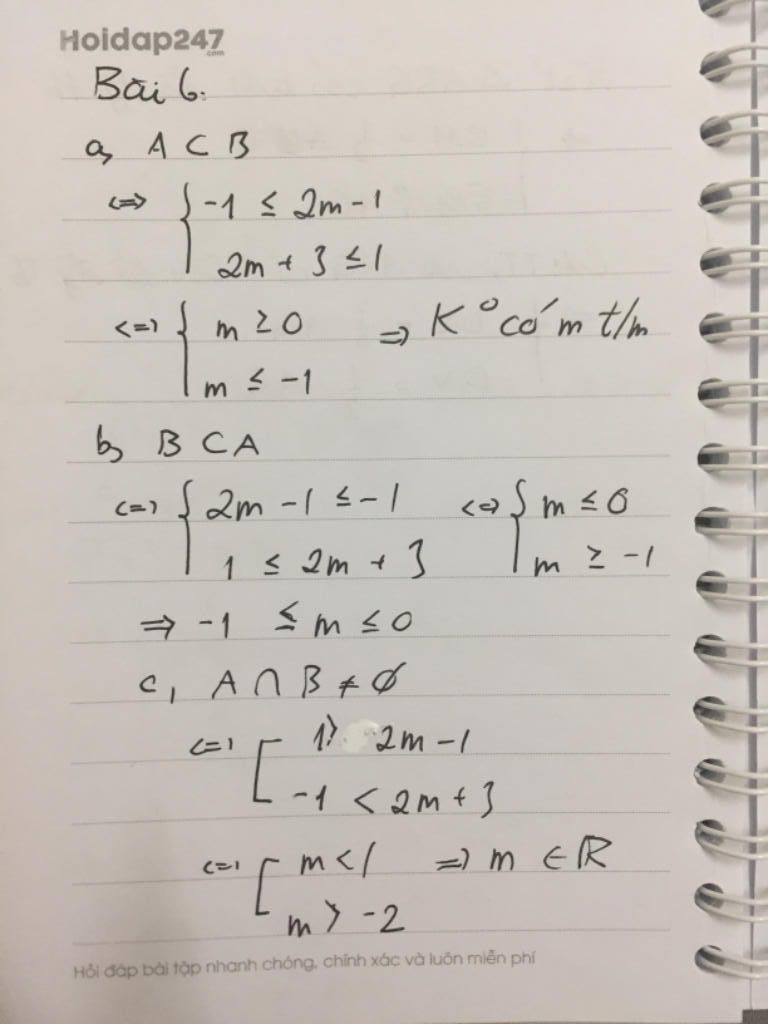 Hoidap247
.com
Bài 6.
a, A ⊂ B
<=> { -1 ≤ 2m - 1
2m + 3 ≤ 1
<=> { m ≥ 0 => K° có m t/m
m ≤ -1
b, B ⊂ A
<=> { 2m - 1 ≤ -1 <=> { m ≤ 0
1 ≤ 2m + 3 m ≥ -1
=> -1 ≤ m ≤ 0
c, A ∩ B ≠ ∅
<=> [ 1 > 2m - 1
-1 < 2m + 3
<=> [ m < 1 => m ∈ ℝ
m > -2
Hỏi đáp bài tập nhanh chóng, chính xác và luôn miễn phí